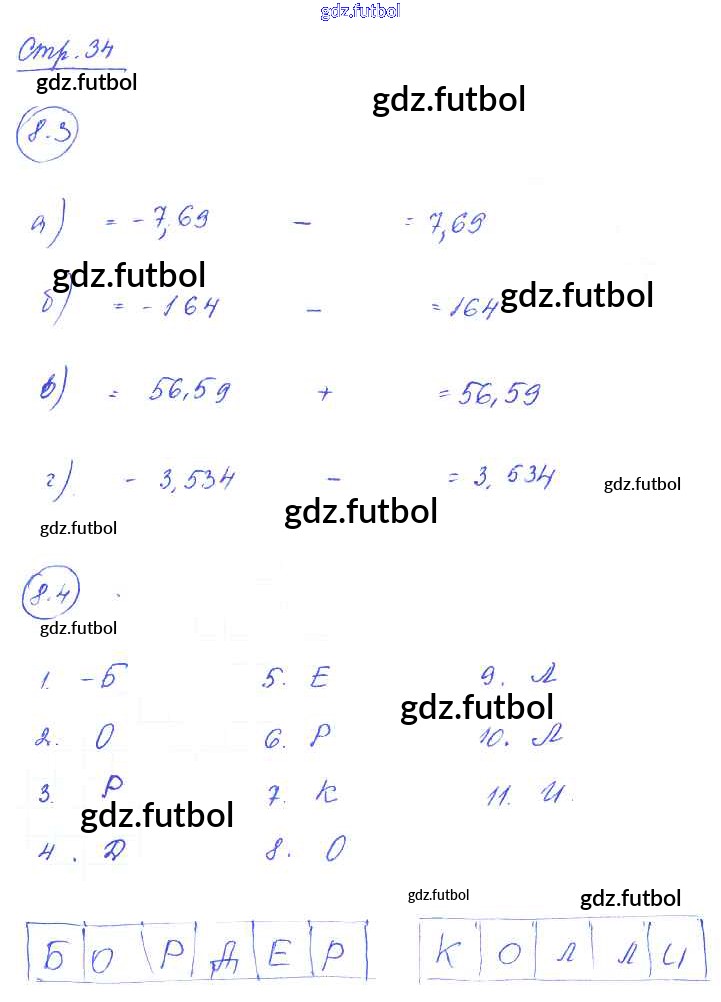 gdz.futbol
Стр. 34
gdz.futbol
gdz.futbol
8.3
а) = - 7,69 - = 7,69
gdz.futbol
б) = - 164 - = 164
gdz.futbol
в) = 56,59 + = 56,59
г) - 3,534 - = 3,534
gdz.futbol
gdz.futbol
gdz.futbol
8.4
gdz.futbol
1. - Б 5. Е 9. Л
gdz.futbol
2. О 6. Р 10. Л
3. Р 7. К 11. И
gdz.futbol
4. Д 8. О
gdz.futbol
gdz.futbol
БОРДЕР КОЛЛИ